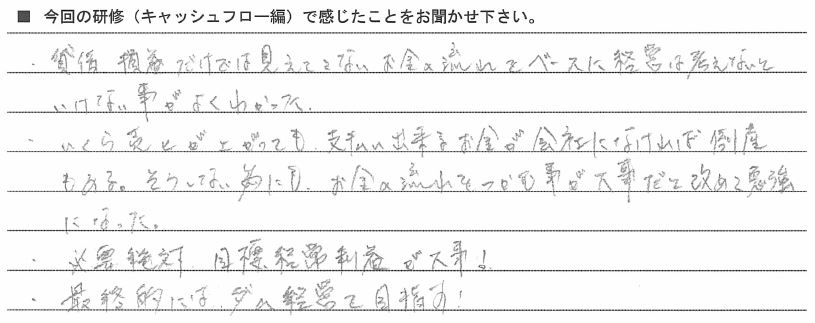 ■ 今回の研修（キャッシュフロー編）で感じたことをお聞かせ下さい。
・貸借 損益だけでは見えてこないお金の流れをベースに経営は考えないと
いけない事がよくわかった。
・いくら売上が上がっても支払い出来るお金が会社になければ倒産
もある。そうしない為にも、お金の流れをつかむ事が大事だと改めて勉強
になった。
・必要絶対 目標経常利益が大事！
・最終的にはダム経営を目指す！